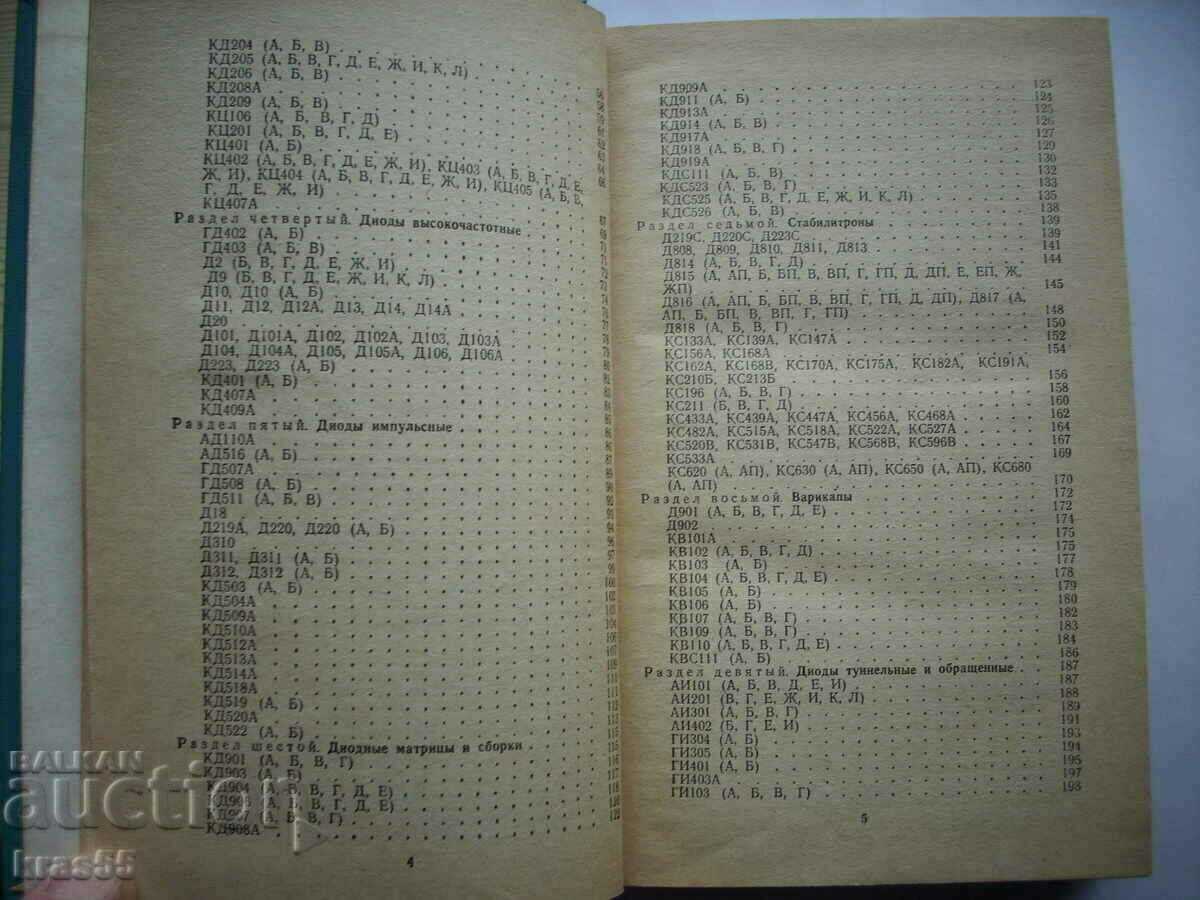 КД204 (А, Б, В)
КД205 (А, Б, В, Г, Д, Е, Ж, И, К, Л)
КД206 (А, Б, В)
КД208А
КД209 (А, Б, В)
КЦ106 (А, Б, В, Г, Д)
КЦ201 (А, Б, В, Г, Д, Е)
КЦ401 (А, Б)
КЦ402 (А, Б, В, Г, Д, Е, Ж, И), КЦ403 (А, Б, В, Г, Д, Е,
Ж, И), КЦ404 (А, Б, В, Г, Д, Е, Ж, И), КЦ405 (А, Б, В,
Г, Д, Е, Ж, И)
КЦ407А
Раздел четвертый. Диоды высокочастотные
ГД402 (А, Б)
ГД403 (А, Б, В)
Д2 (Б, В, Г, Д, Е, Ж, И)
Д9 (Б, В, Г, Д, Е, Ж, И, К, Л)
Д10, Д10 (А, Б)
Д11, Д12, Д12А, Д13, Д14, Д14А
Д20
Д101, Д101А, Д102, Д102А, Д103, Д103А
Д104, Д104А, Д105, Д105А, Д106, Д106А
Д223, Д223 (А, Б)
КД401 (А, Б)
КД407А
КД409А
Раздел пятый. Диоды импульсные
АД110А
АД516 (А, Б)
ГД507А
ГД508 (А, Б)
ГД511 (А, Б, В)
Д18
Д219А, Д220, Д220 (А, Б)
Д310
Д311, Д311 (А, Б)
Д312, Д312 (А, Б)
КД503 (А, Б)
КД504А
КД509А
КД510А
КД512А
КД513А
КД514А
КД518А
КД519 (А, Б)
КД520А
КД522 (А, Б)
Раздел шестой. Диодные матрицы и сборки
КД901 (А, Б, В, Г)
КД903 (А, Б)
КД904 (А, Б, В, Г, Д, Е)
(А, Б, В, Г, Д, Е)
(А, Б, В, Г)
КД908А
4
КД909А 123
КД911 (А, Б) 124
КД913А 125
КД914 (А, Б, В) 126
КД917А 127
КД918 (А, Б, В, Г) 129
КД919А 130
КДС111 (А, Б, В) 132
КДС523 (А, Б, В, Г) 133
КДС525 (А, Б, В, Г, Д, Е, Ж, И, К, Л) 135
КДС526 (А, Б, В) 138
Раздел седьмой. Стабилитроны 139
Д219С, Д220С, Д223С 139
Д808, Д809, Д810, Д811, Д813 141
Д814 (А, Б, В, Г, Д) 144
Д815 (А, АП, Б, БП, В, ВП, Г, ГП, Д, ДП, Е, ЕП, Ж,
ЖП) 145
Д816 (А, АП, Б, БП, В, ВП, Г, ГП, Д, ДП), Д817 (А,
АП, Б, БП, В, ВП, Г, ГП) 148
Д818 (А, Б, В, Г) 150
КС133А, КС139А, КС147А 152
КС156А, КС168А 154
КС162А, КС168В, КС170А, КС175А, КС182А, КС191А,
КС210Б, КС213Б 156
КС196 (А, Б, В, Г) 158
КС211 (Б, В, Г, Д) 160
КС433А, КС439А, КС447А, КС456А, КС468А 162
КС482А, КС515А, КС518А, КС522А, КС527А 164
КС520В, КС531В, КС547В, КС568В, КС596В 167
КС533А 169
КС620 (А, АП), КС630 (А, АП), КС650 (А, АП), КС680
(А, АП) 170
Раздел восьмой. Варикапы 172
Д901 (А, Б, В, Г, Д, Е) 172
Д902 174
КВ101А 175
КВ102 (А, Б, В, Г, Д) 175
КВ103 (А, Б) 177
КВ104 (А, Б, В, Г, Д, Е) 178
КВ105 (А, Б) 179
КВ106 (А, Б) 180
КВ107 (А, Б, В, Г) 182
КВ109 (А, Б, В, Г) 183
КВ110 (А, Б, В, Г, Д, Е) 184
КВС111 (А, Б) 186
Раздел девятый. Диоды туннельные и обращенные 187
АИ101 (А, Б, В, Д, Е, И) 187
АИ201 (В, Г, Е, Ж, И, К, Л) 188
АИ301 (А, Б, В, Г) 189
АИ402 (Б, Г, Е, И) 191
ГИ304 (А, Б) 193
ГИ305 (А, Б) 194
ГИ401 (А, Б) 195
ГИ403А 197
ГИ103 (А, Б, В, Г) 198
5
BALKAN
auction
kras55